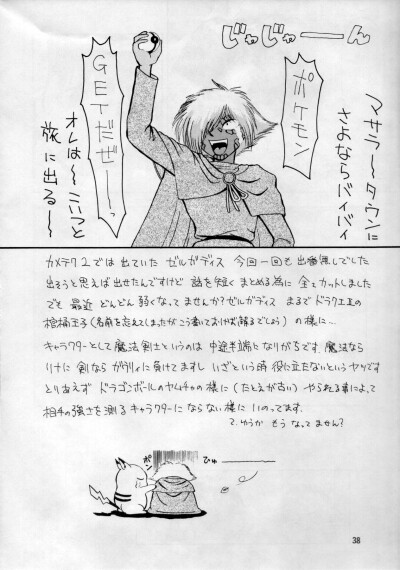 じゃじゃーん
ポケモン
GETだぜーっ
マサラ〜タウンに
さよならバイバイ
オレは〜こいつと
旅に出る〜
カメテク2では出ていた ゼルガディス 今回一回も出番無しでした
出そうと思えば出せたんですけど 話を短く まとめる為に 全てカットしました
でも 最近 どんどん 弱くなってませんか?ゼルガディス まるでドラクエⅡの
棺桶王子(名前を忘えてしまったが こう書いておけば解るでしょう)の様に…
キャラクターとして魔法剣士というのは 中途半端となりがちです。魔法なら
リナに 剣なら ガウリィに負けてますし いざという時 役に立たないというヤツです
とりあえず ドラゴンボールのヤムチャの様に(たとえが古い) やられる事によって
相手の強さを測る キャラクターにならない様に いのってます。
てゆうか もう なってません?
ポン
ひゅー
38